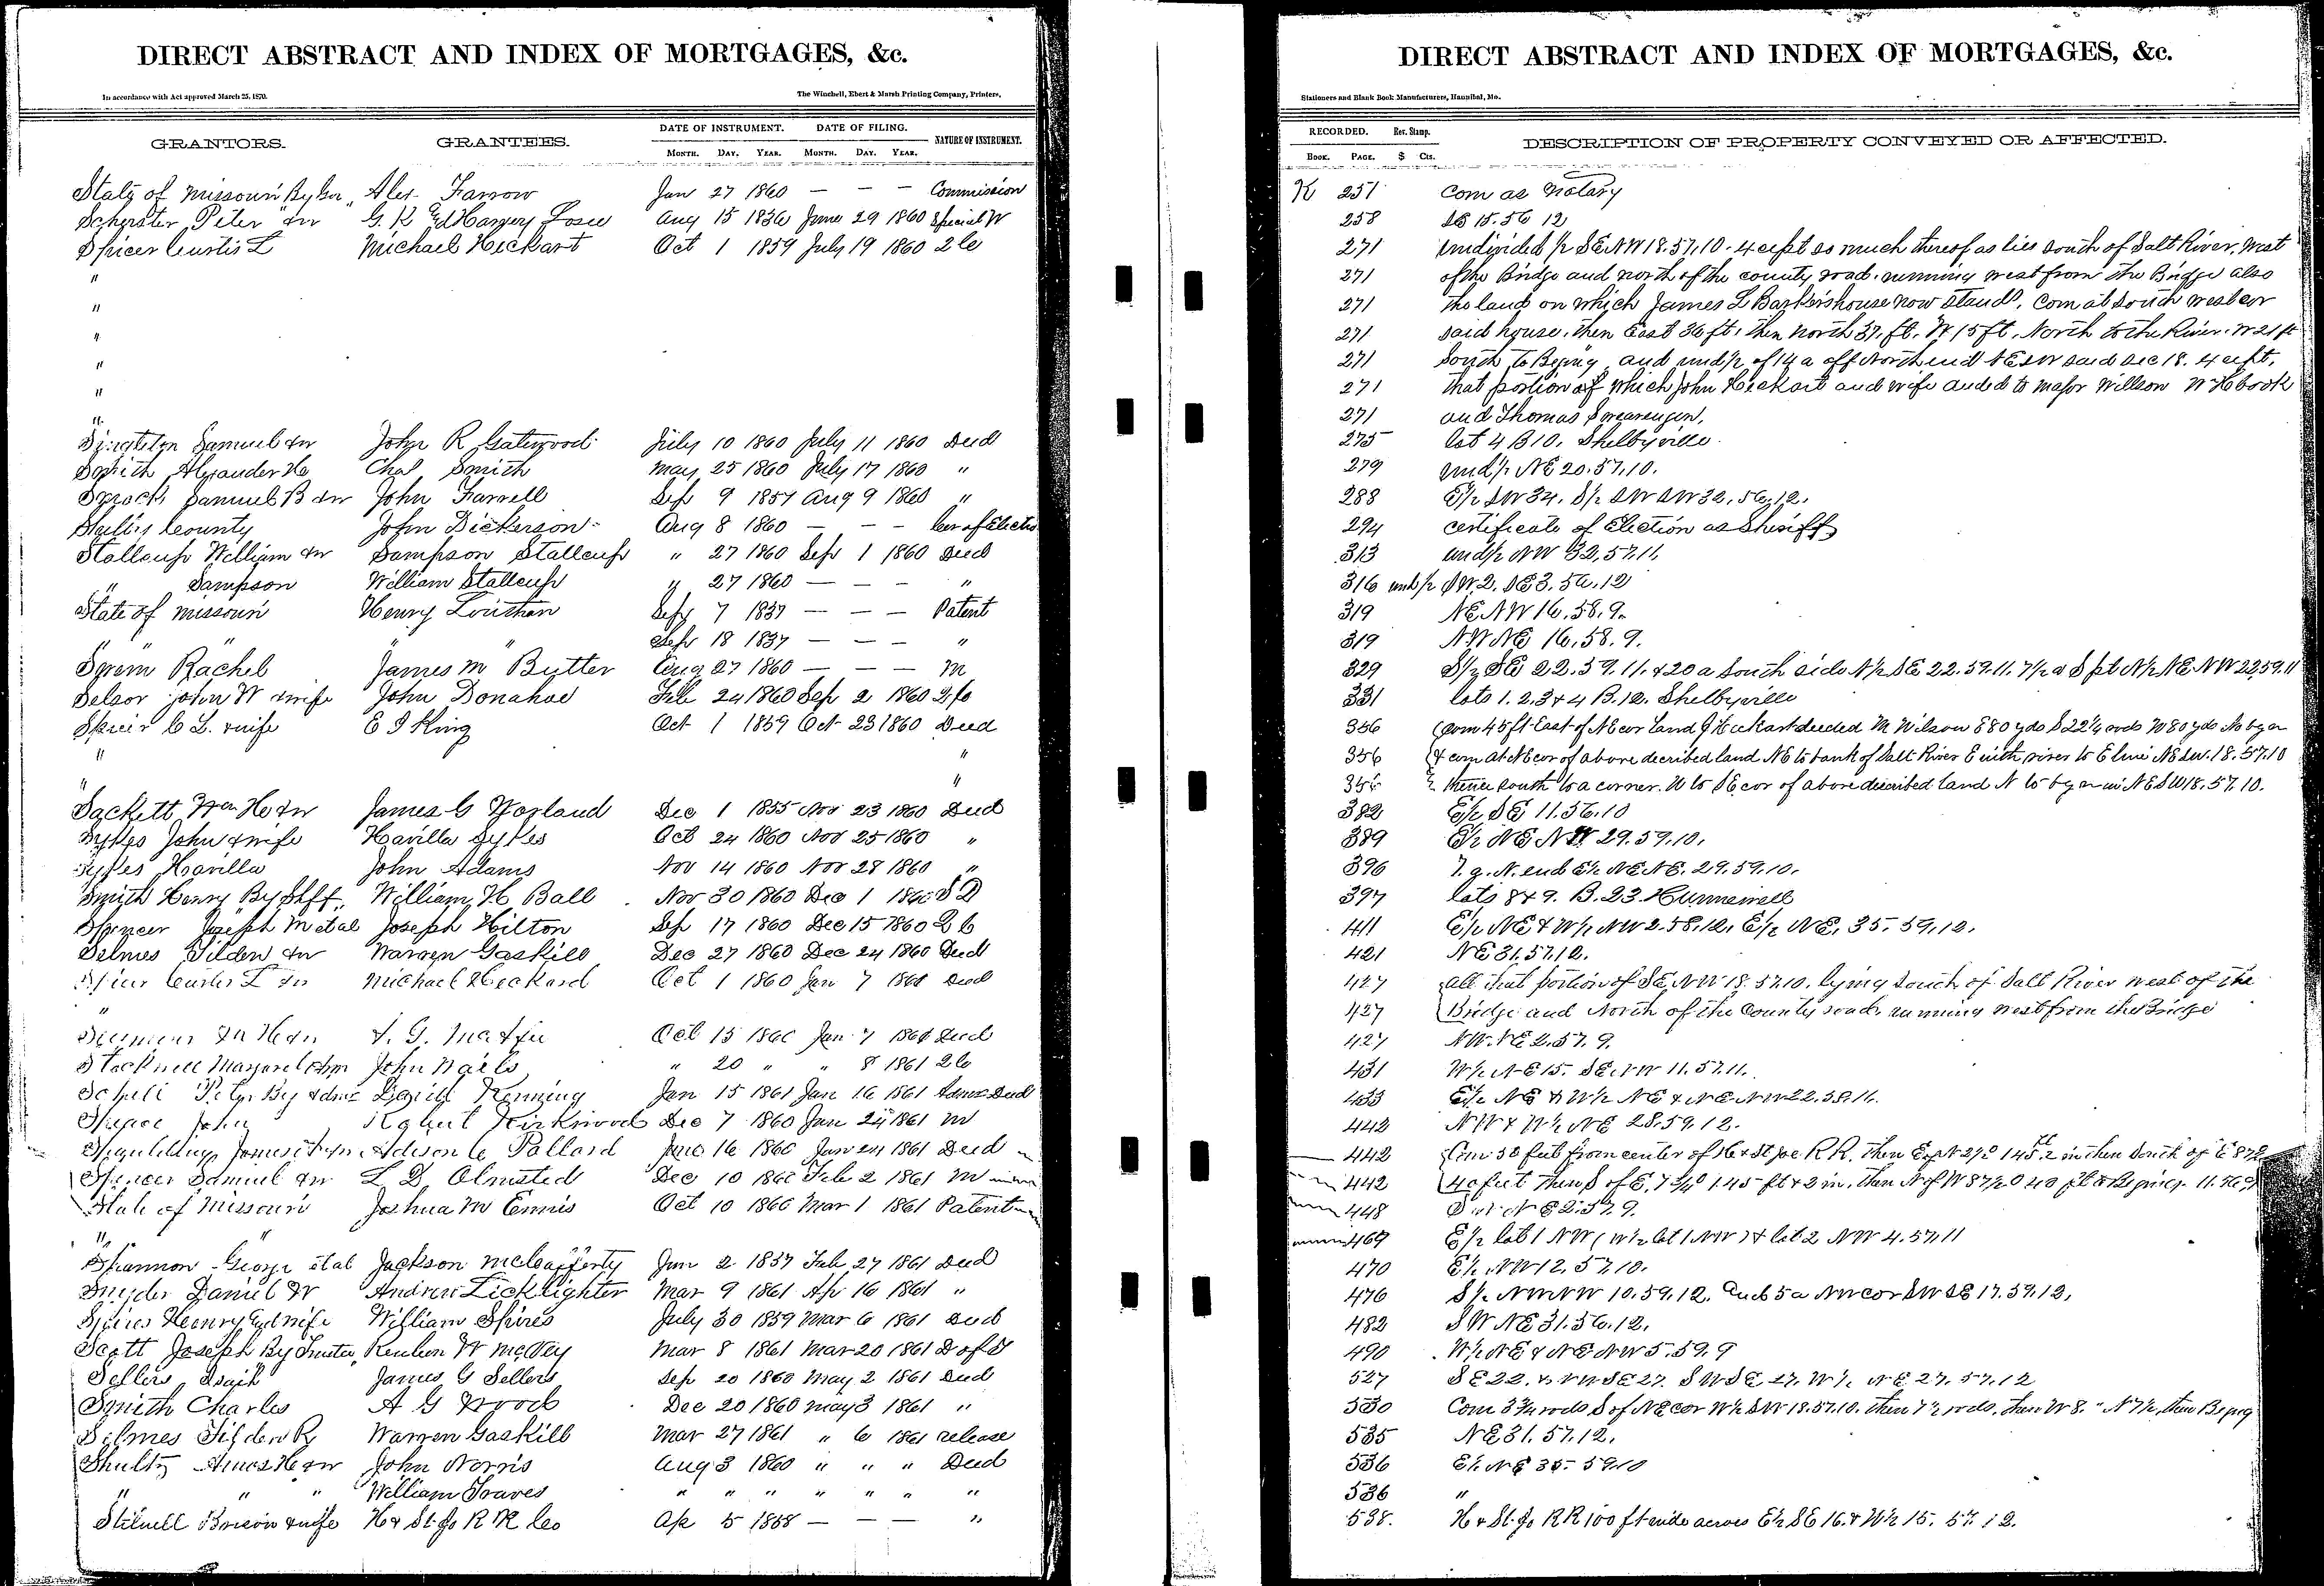 DIRECT ABSTRACT AND INDEX OF MORTGAGES, &c.
In accordance with Act approved March 25, 1870.
The Winchell, Ebert & Marsh Printing Company, Printers,
GRANTORS. GRANTEES. DATE OF INSTRUMENT. DATE OF FILING. NATURE OF INSTRUMENT.
MONTH. DAY. YEAR. MONTH. DAY. YEAR.
State of Missouri By Gov Alex Farrow Jan 27 1860 — — — Commission
Peter &w G. K Aug 15 1836 June 29 1860 Special W
Spicer Curtis L Michael Heckart Oct 1 1859 July 19 1860 2 C
"
"
"
"
"
"
Singleton Samuel &w John R Gatewood July 10 1860 July 11 1860 Deed
Smith Alexander Chas Smith May 25 1860 July 17 1860 "
Samuel B &w John Farrell Sep 9 1857 Aug 9 1860 "
Shelby County John Dickerson Aug 8 1860 — — — Cer of Electio
Stallcup William &w Sampson Stallcup " 27 1860 Sep 1 1860 Deed
" Sampson William Stallcup " 27 1860 — — — "
State of Missouri Henry Louthan Sep 7 1837 — — — Patent
" " Sep 18 1837 — — — "
Rachel James M Butter Aug 27 1860 — — — M
Selsor John W &wife John Donahoe Feb 24 1860 Sep 2 1860
Spicer C L. &wife E J King Oct 1 1859 Oct 23 1860 Deed
" "
" "
Sackett Wm H &w James G Worland Dec 1 1855 Nov 23 1860 Deed
Sykes John &wife Havilla Sykes Oct 24 1860 Nov 25 1860 "
Sykes Havilla John Adams Nov 14 1860 Nov 28 1860 "
Smith Henry By Shff. William H. Ball Nov 30 1860 Dec 1 1860 S D
Spencer Joseph M et al Joseph Hilton Sep 17 1860 Dec 15 1860
Selmes Tilden &w Warren Gaskill Dec 27 1860 Dec 24 1860 Deed
Spicer Curtis L &w Michael Heckard Oct 1 1860 Jan 7 1861 Deed
"
Oct 15 1860 Jan 7 1861 Deed
Margaret John " 20 " " 8 1861 2 C
Peter By Adm Jan 15 1861 Jan 16 1861 Deed
John Robert Kirkwood Dec 7 1860 Jan 24 1861 M
James Adison C Pollard June 16 1860 Jan 1861 Deed
Spencer Samuel &w L D. Olmsted Dec 10 1860 Feb 2 1861 M
State of Missouri Joshua M Ennis Oct 10 1860 Mar 1 1861 Patent
"
Shannon George et al Jackson McCafferty Jan 2 1857 Feb 27 1861 Deed
Snyder Daniel W Andrew Licklighter Mar 9 1861 Ap 16 1861 "
Spires Henry &wife William Spires July 30 1859 Mar 6 1861 Deed
Scott Joseph By Trustee, Reuben W McVey Mar 8 1861 Mar 20 1861 D of T
Sellers Isaiah James G Sellers Sep 20 1860 May 2 1861 Deed
Smith Charles A G Wood Dec 20 1860 May 3 1861 "
Selmes Tilden R Warren Gaskill Mar 27 1861 " 6 1861 release
Shultz Amos H &w John Norris Aug 3 1860 " " " Deed
" " " William Graves " " " " " " "
Stilwell Brison &wife H & St. Jo R R Co Ap 5 1858 — — — "
DIRECT ABSTRACT AND INDEX OF MORTGAGES, &c.
Stationers and Blank Book Manufacturers, Hannibal, Mo.
RECORDED. Rev. Stamp. DESCRIPTION OF PROPERTY CONVEYED OR AFFECTED.
BOOK. PAGE. $ Cts.
K 251 Com as Notary
258 15.56 12
271 undivided ½ SE NW 18.57.10. except so much thereof as lies south of Salt River, West
271 of the Bridge and north of the county road. running west from the Bridge also
271 the land on which James L Barkers house now stands, com at South west cor
271 said house, then East 36 ft, then north 37, ft. W 15 ft, North to the River. W 21 ft
271 South to Begng, and und ½ of 14 a off North end NE SW said sec 18. except,
271 that portion of which John Heckart and wife deeded to Major Willson W H book
271 and Thomas Swearengen,
275 lot 4 B 10. Shelbyville
279 und ½ NE 20.57.10.
288 E½ SW 34. S½ SW SW 32, 56, 12,
294 certificate of Election as Sheriff
313 und ½ NW 32, 57.11,
316 und ½ SW. 2. SE 3. 56. 12
319 NE NW 16. 58. 9.
319 NW NE 16, 58. 9.
329 S½ SE 22. 59. 11. & 20 a South side N½ SE 22. 59. 11. 7½ a S pt N½ NE NW 22, 59 11
331 lots 1. 2. 3 & 4 B. 12. Shelbyville
356 Com 45 ft East of NE cor Land J Heckart deeded M Wilson E 80 yds S 22¼ rods W 80 yds N to begn
356 & com at NE cor of above decribed land NE to bank of Salt River E with river to E line NE SW. 18. 57.10
356 thence South to a corner. W to SE cor of above discribed land N to begn in NE SW 18. 57. 10.
382 E½ SE 11.56.10
389 E½ NE NW 29.59.10.
396 7. a. N. end E½ NE NE. 29.59.10.
397 lots 8 & 9. B. 23. Hunnewell
411 E½ NE & W½ NW 2. 58. 12. E½ NE. 35. 59, 12.
421 NE 31.57.12.
427 all that portion of SE NW 18. 57.10. lying South of Salt River west of the
427 Bridge and North of the County road, running west from the Bridge
427 NW. NE 2. 57. 9.
431 W½ NE 15. 11. 57. 11.
433 E½ NE & W½ NE & NE NW 22. 58.
442 NW & W½ NE 28. 59. 12.
442 Com 50 feet from center of H & St Joe R R. then
442 40 feet then S of E. 145 ft & 2 in. then N of W 87½ 40 ft
448 NE 2. 57. 9.
469 E½ lot 1 NW (W½ lot 1. NW) & lot 2 NW 4. 57, 11
470 E½ NW 12, 57.10.
476 S½ NW NW 10. 59. 12. and 5 a NW cor SW SE 17. 59. 12,
482 SW NE 31. 56. 12.
490 W½ NE & NE NW 5. 59. 9
527 SE 22. & NW SE 27. SW SE, 27. W½ NE 27. 57. 12
530 Com 3¾ rods S of NE cor W½ SW 18. 57.10. then 7½ rods, then W 8. " N 7½, then Begng
535 NE 31. 57. 12.
536 E½ NE 35. 59.10
536 "
538. H & St. Jo R R 100 ft wide across E½ SE 16. & W½ 15. 57. 12.